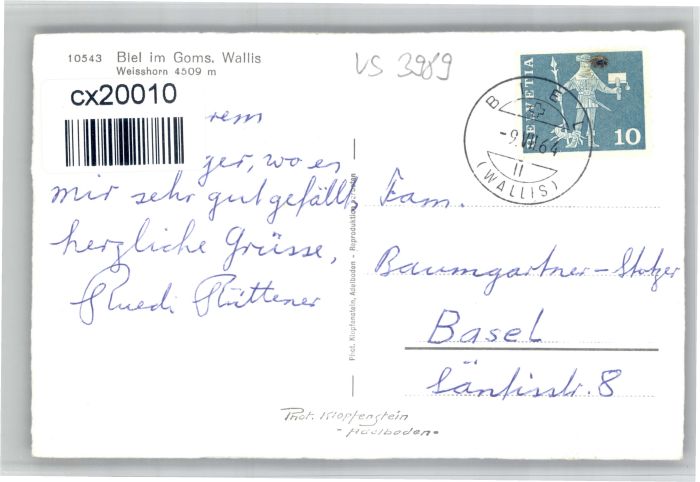 10543 Biel im Goms, Wallis
Weisshorn 4509 m
VS 3989
cx20010
HELVETIA
10
BIEL
-9.VII.64
11
(WALLIS)
ger, wo es
mir sehr gut gefällt,
herzliche Grüsse,
Ruedi
Fam.
Baumgartner-Stolzer
Basel
Säntisstr. 8
Phot. Klopfenstein, Adelboden - Reproduktion verboten
Phot. Klopfenstein
- Adelboden -